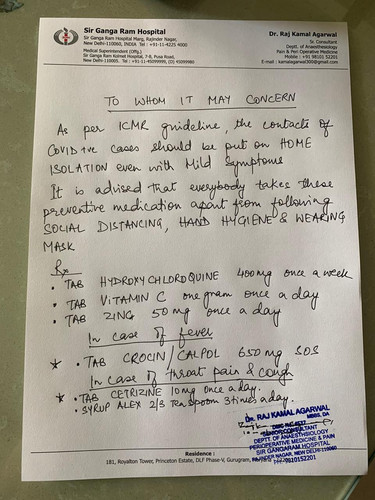 Sir Ganga Ram Hospital
Sir Ganga Ram Hospital Marg, Rajinder Nagar,
New Delhi-110060, INDIA Tel : +91-11-4225 4000
Medical Superintendent (Offg.)
Sir Ganga Ram Kolmet Hospital, 7-B, Pusa Road,
New Delhi-110005. Tel : +91-11-45099999, (D) 45999980
Dr. Raj Kamal Agarwal
Sr. Consultant
Deptt. of Anaesthesiology
Pain & Peri Operative Medicine
Mobile : +91 98101 52201
E-mail : kamalagarwal300@gmail.com
TO WHOM IT MAY CONCERN
As per ICMR guideline, the contacts of
COVID +ve cases should be put on HOME
ISOLATION even with Mild Symptoms
It is advised that everybody takes these
preventive medication apart from following
SOCIAL DISTANCING, HAND HYGIENE & WEARING
MASK
Rx
• TAB HYDROXYCHLOROQUINE 400mg once a week
• TAB VITAMIN C one gram once a day
• TAB ZINC 50mg once a day
In case of fever
* • TAB CROCIN/CALPOL 650mg SOS
In case of throat pain & cough
* • TAB CETRIZINE 10mg once a day.
• SYRUP ALEX 2/3 Teaspoon 3 times a day.
Dr. RAJ KAMAL AGARWAL
MBBS, DA
SENIOR CONSULTANT
DEPTT. OF ANAESTHSIOLOGY
PERIOPERATIVE MEDICINE & PAIN
SIR GANGARAM HOSPITAL
RAJINDER NAGAR, NEW DELHI-110060
9810152201
Residence :
181, Royalton Tower, Princeton Estate, DLF Phase-V, Gurugram,